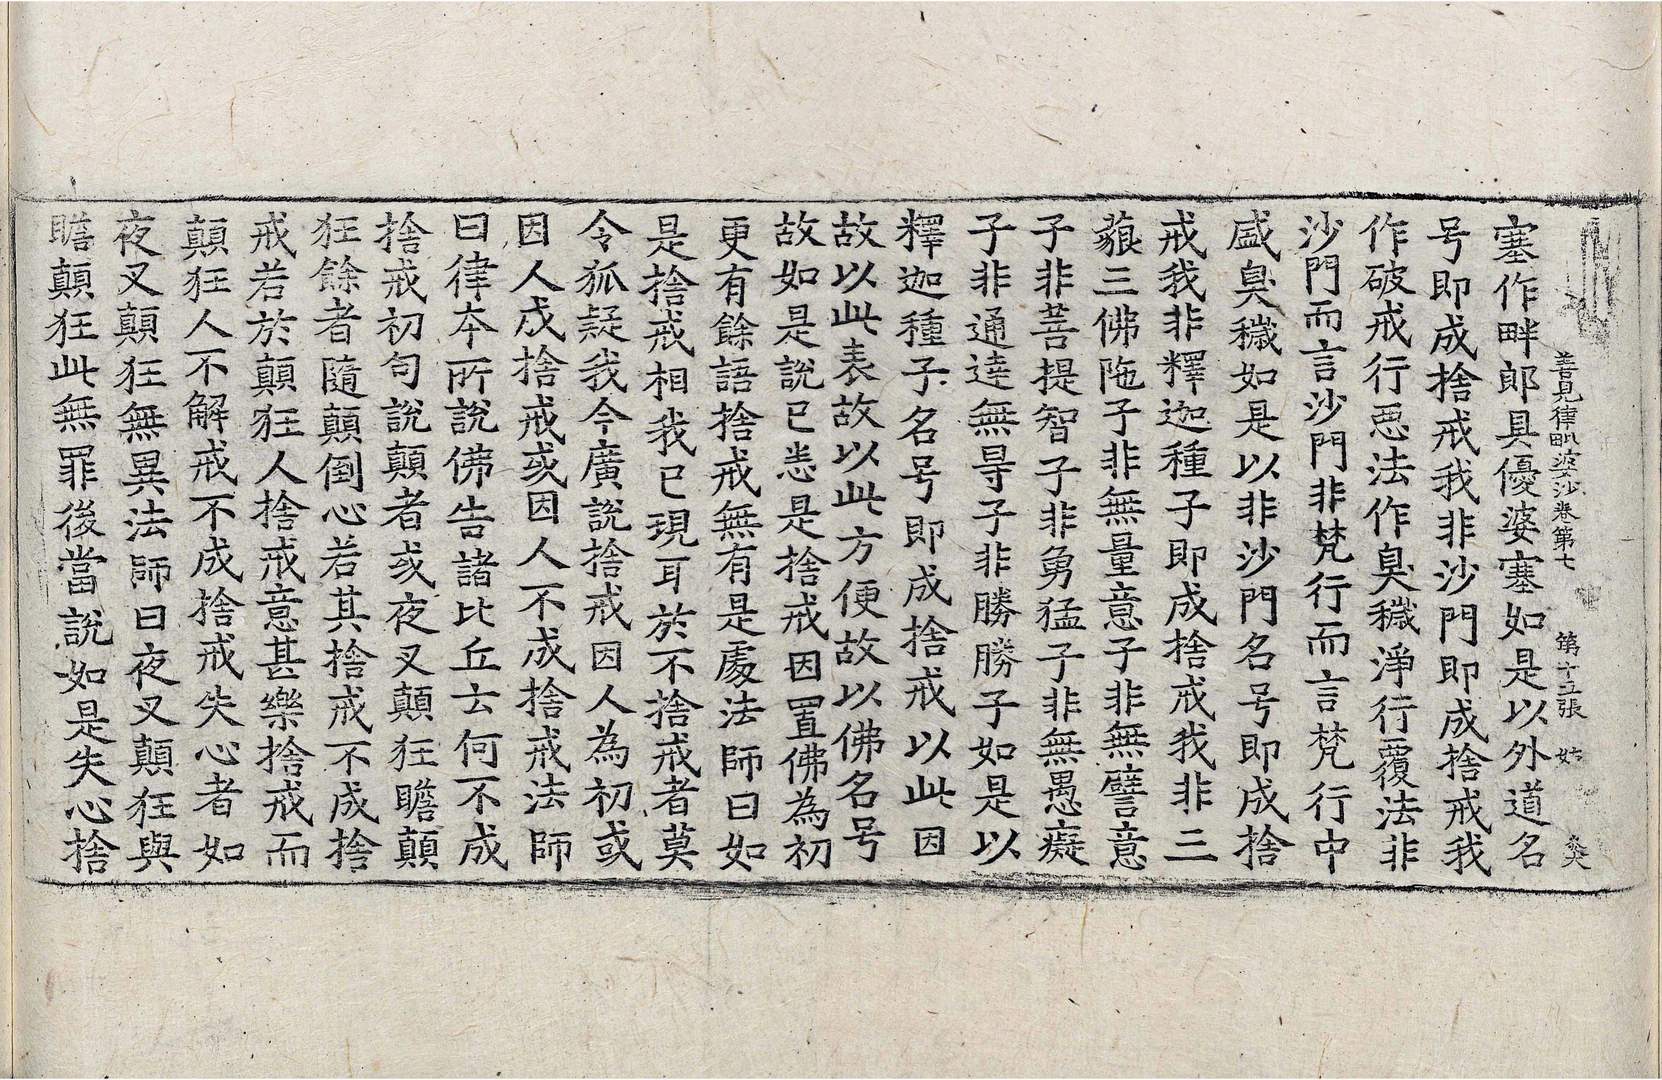 善見律毗婆沙卷第七 第十五張 姑
塞作畔郎具優婆塞如是以外道名
号即成捨戒我非沙門即成捨戒我
作破戒行惡法作臭穢淨行覆法非
沙門而言沙門非梵行而言梵行中
盛臭穢如是以非沙門名号即成捨
戒我非釋迦種子即成捨戒我非三
藐三佛陁子非無量意子非無譬意
子非菩提智子非勇猛子非無愚癡
子非通達無㝵子非勝勝子如是以
釋迦種子名号即成捨戒以此因
故以此表故以此方便故以佛名号
故如是說已悉是捨戒因置佛為初
更有餘語捨戒無有是處法師曰如
是捨戒相我已現耳於不捨戒者莫
令狐疑我今廣說捨戒因人為初或
因人成捨戒或因人不成捨戒法師
曰律本所說佛告諸比丘云何不成
捨戒初句說顛者或夜叉顛狂瞻顛
狂餘者隨顛倒心若其捨戒不成捨
戒若於顛狂人捨戒意甚樂捨戒而
顛狂人不解戒不成捨戒失心者如
夜叉顛狂無異法師曰夜叉顛狂與
瞻顛狂此無罪後當說如是失心捨